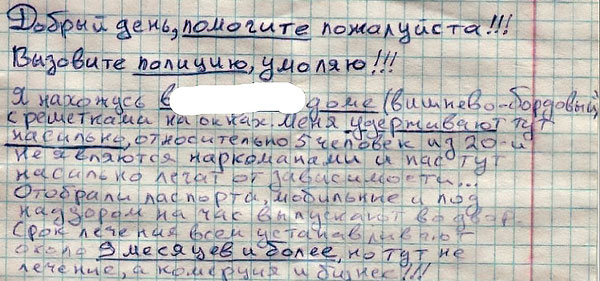 Добрый день, помогите пожалуйста!!!
Вызовите полицию, умоляю!!!
Я нахожусь в доме (вишнево-бордовый,
с решетками на окнах. Меня удерживают тут
насильно, относительно 5 человек из 20-и
не являются наркоманами и нас тут
насильно лечат от зависимости...
Отобрали паспорта, мобильные и под
надзором на час выпускают во двор.
Срок лечения всем устанавливают
около 9 месяцев и более, но тут не
лечение, а комерция и бизнес!!!